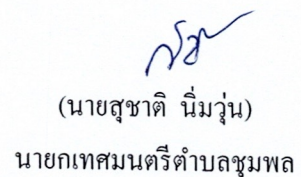 (นายสุชาติ นิ่มวุ่น)
นายกเทศมนตรีตำบลชุมพล